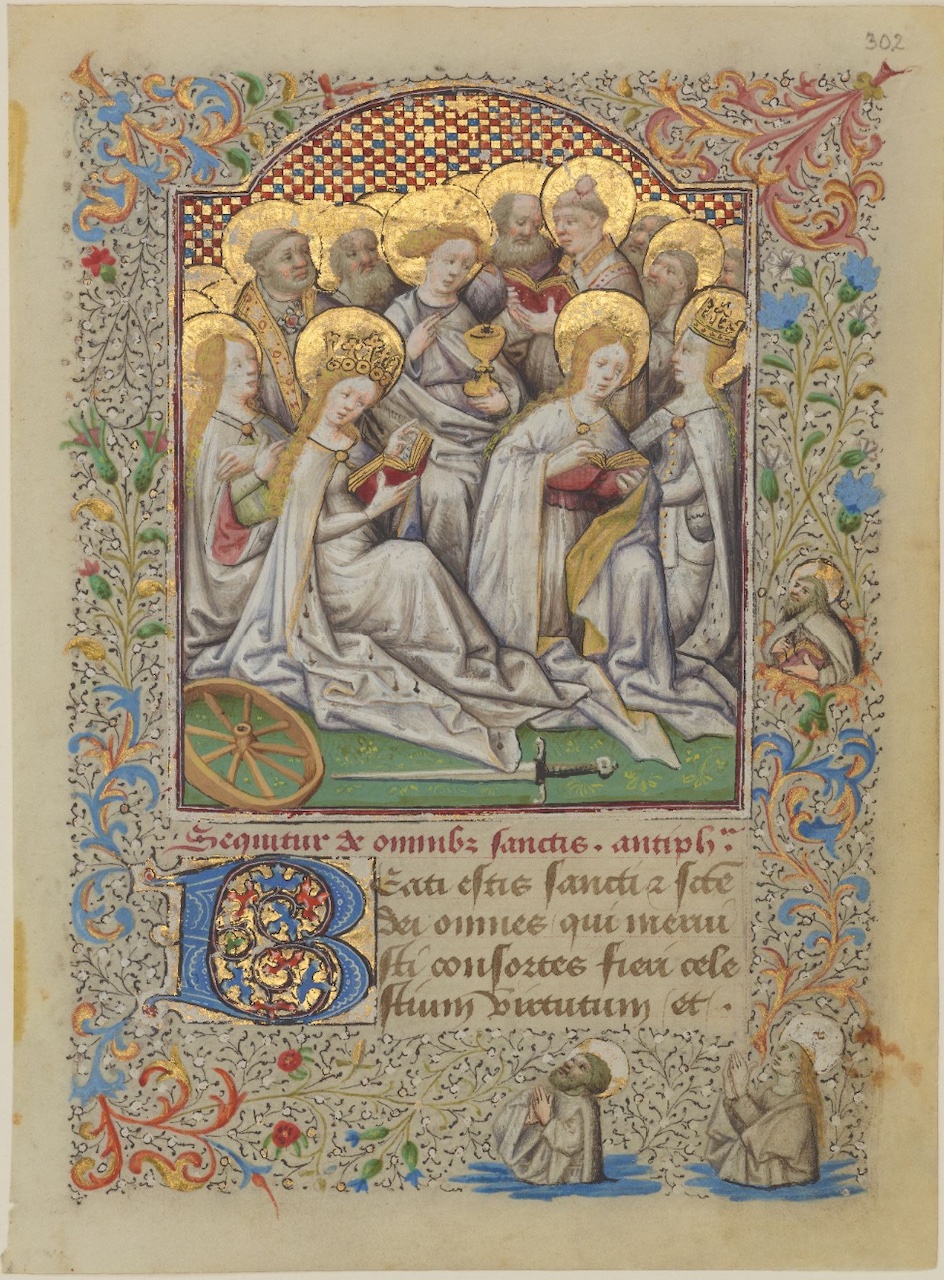 302
Sequitur de omnibz sanctis. antiph.
Beati estis sancti z scte
dei omnes qui merui
sti consortes fieri cele
stium virtutum et.